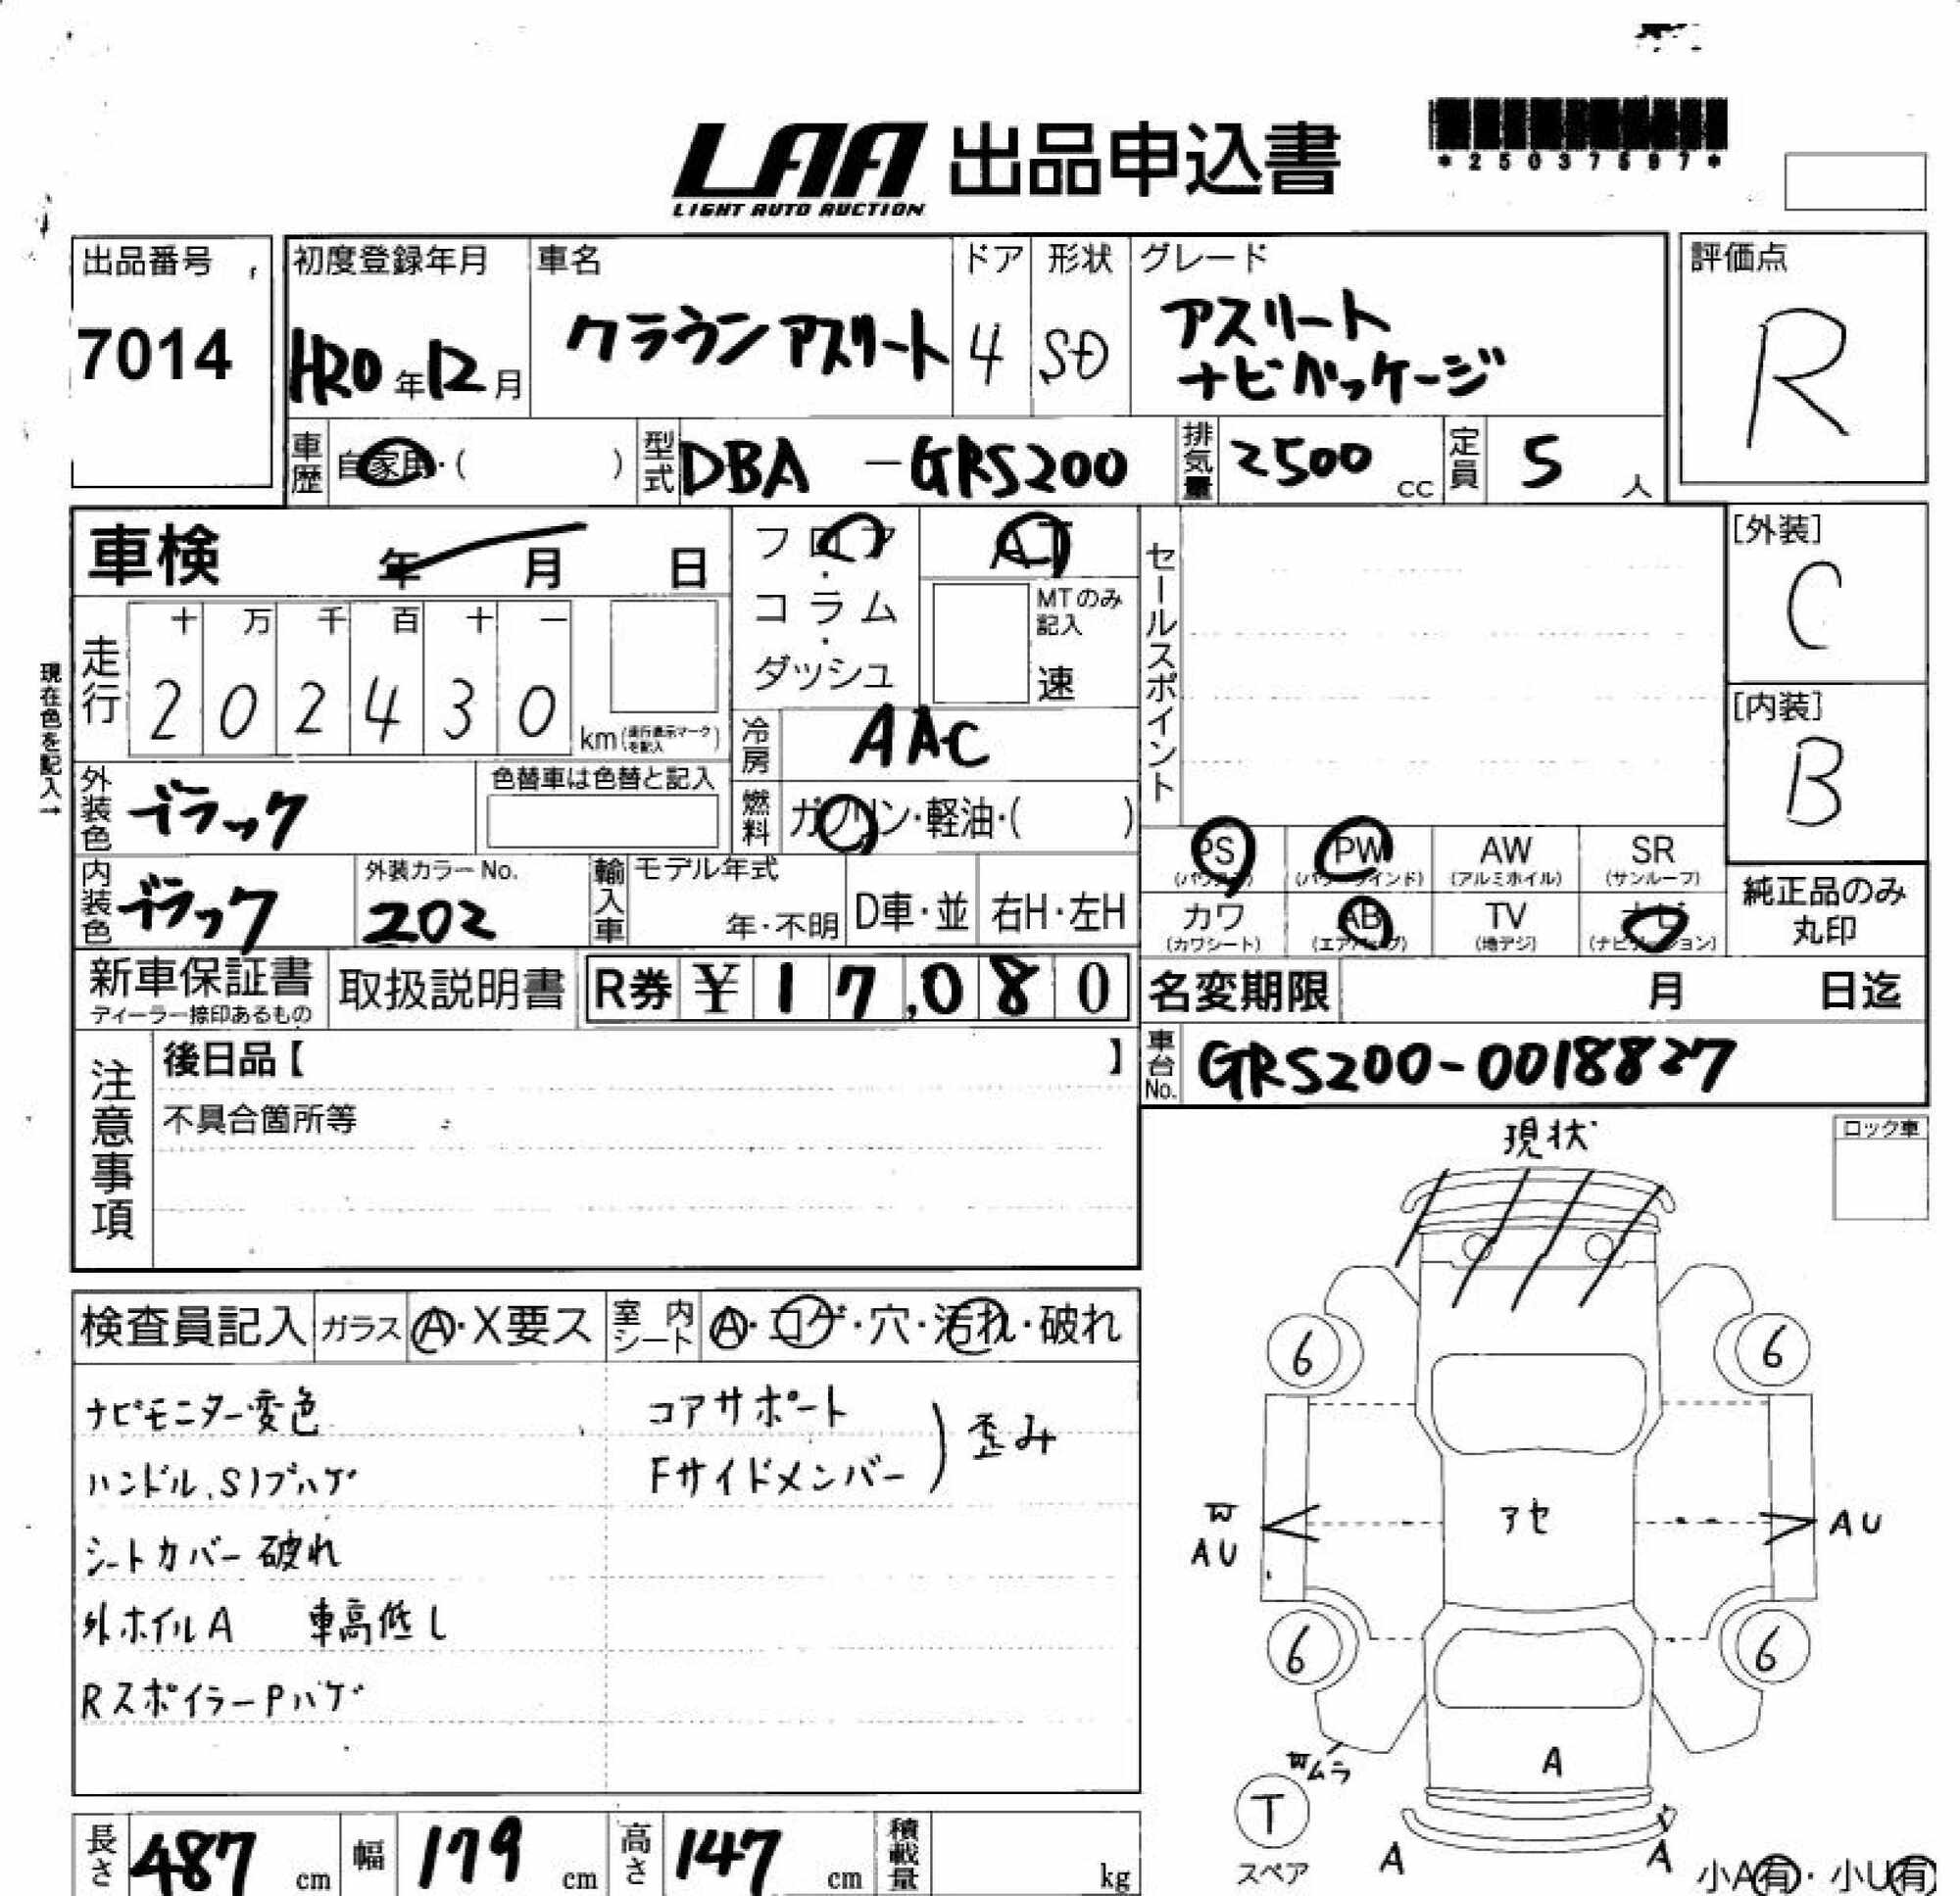 LAA 出品申込書
LIGHT AUTO AUCTION
*25037597*
出品番号
7014
初度登録年月
HR0年12月
車名
クラウンアスリート
ドア
4
形状
SD
グレード
アスリート
ナビパッケージ
評価点
R
車歴
自家用・( )
型式
DBA -GRS200
排気量
2500 cc
定員
5 人
車検 年 月 日
フロア
・
コラム
・
ダッシュ
AT
MTのみ
記入
速
セールスポイント
[外装]
C
[内装]
B
現在色を記入→
走行
十 万 千 百 十 一
2 0 2 4 3 0 km(走行表示マークを記入)
冷房
AAC
外装色
ブラック
色替車は色替と記入
燃料
ガソリン・軽油・( )
PS PW AW SR
(パワステ) (パワーウインド) (アルミホイル) (サンルーフ)
カワ AB TV ナビ
(カワシート) (エアバッグ) (地デジ) (ナビゲーション)
純正品のみ
丸印
内装色
ブラック
外装カラーNo.
202
輸入車
モデル年式
年・不明
D車・並
右H・左H
新車保証書
ディーラー捺印あるもの
取扱説明書
R券 ¥ 1 7,0 8 0
名変期限 月 日迄
車台No.
GRS200-0018827
注意事項
後日品【 】
不具合箇所等
現状
ロック車
検査員記入
ガラス
A・X要ス
室内シート
A・コゲ・穴・汚れ・破れ
ナビモニター変色
コアサポート
Fサイドメンバー
歪み
ハンドル、S)ブハゲ
シートカバー破れ
外ホイルA 車高低し
RスポイラーPハゲ
6 6
アセ
W
AU
AU
6 6
Wムラ
A
T
スペア
A A
小A有・小U有
長さ 487 cm
幅 179 cm
高さ 147 cm
積載量 kg